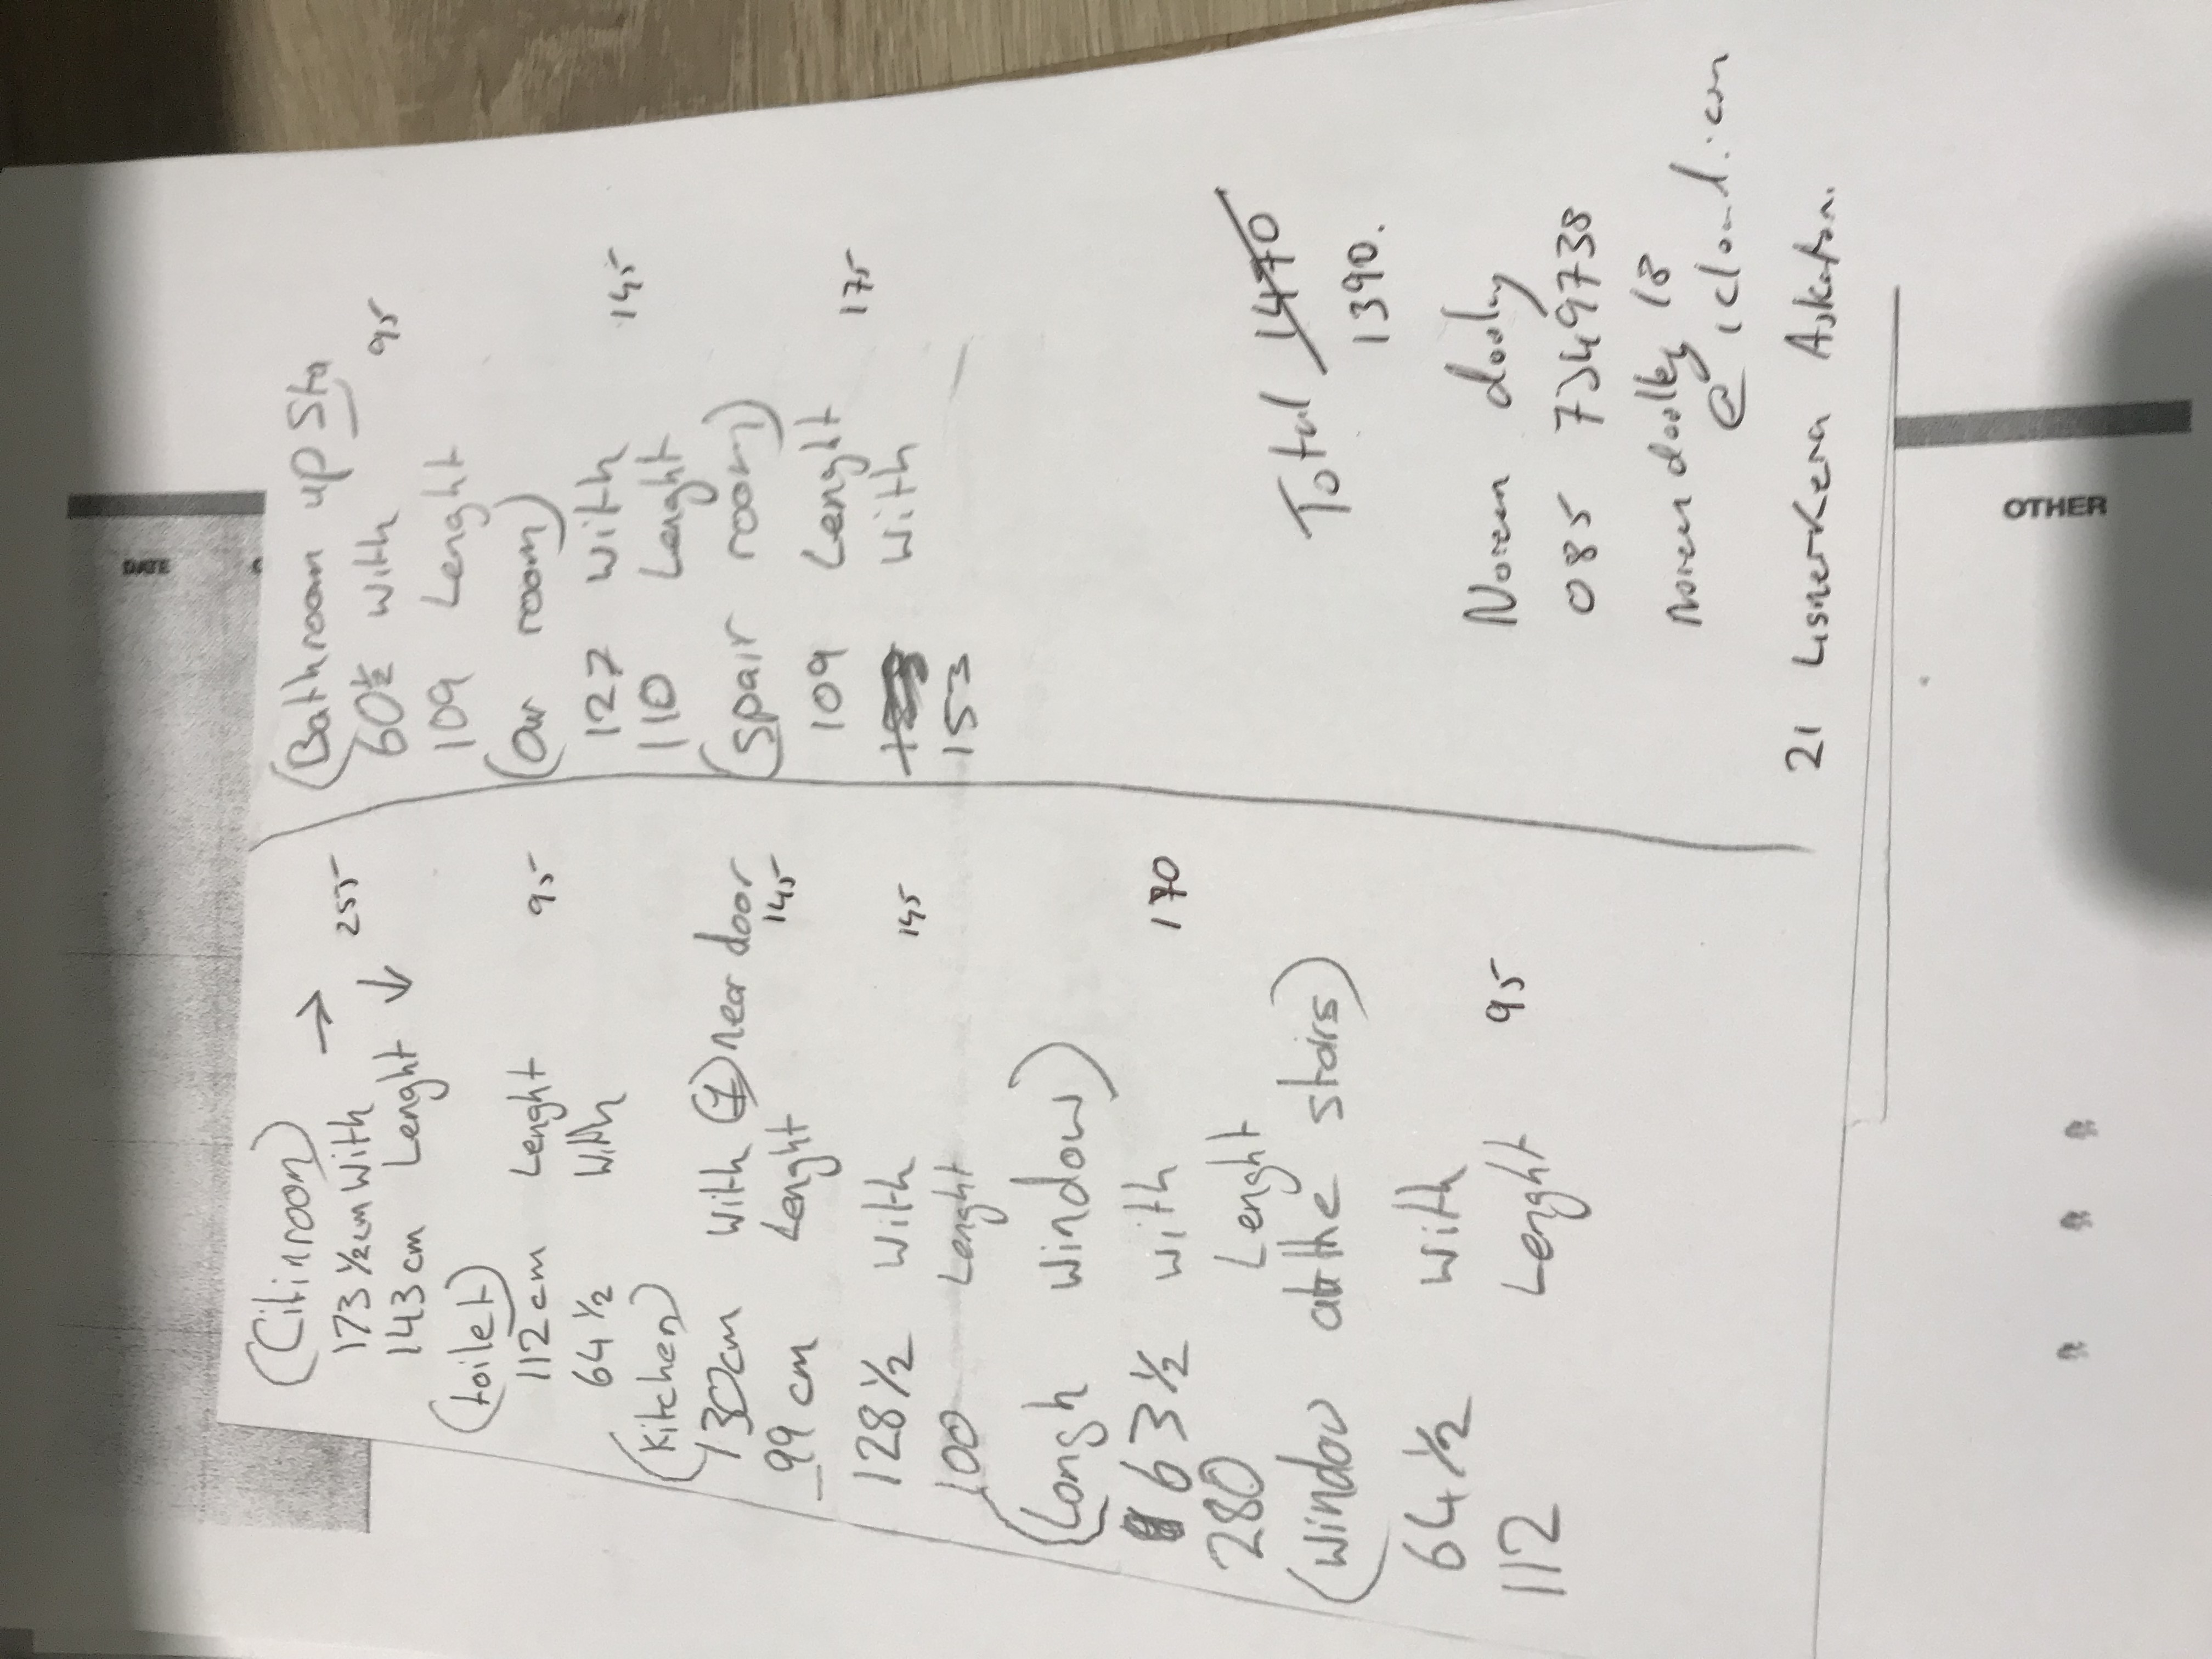 DATE
(Citinroom)
173 ½ cm With → 255
143 cm Lenght ↓
(toilet)
112 cm Lenght 95
64 ½ With
(Kitchen)
130cm With (1) near door
99 cm Lenght 145
128 ½ With 145
100 Lenght
(Longh window)
63 ½ with 170
280 Lenght
(window at the stairs)
64 ½ With 95
112 Lenght
(Bathroom up Sta
60½ with 95
109 Lenght
(Our room)
127 with 145
110 Lenght
(Spair room)
109 Lenght 175
153 with
Total 1470
1390.
Noreen dooley
085 7349738
noreendoolley18
@icloud.com
21 Lisnerkera Askeaton.
OTHER